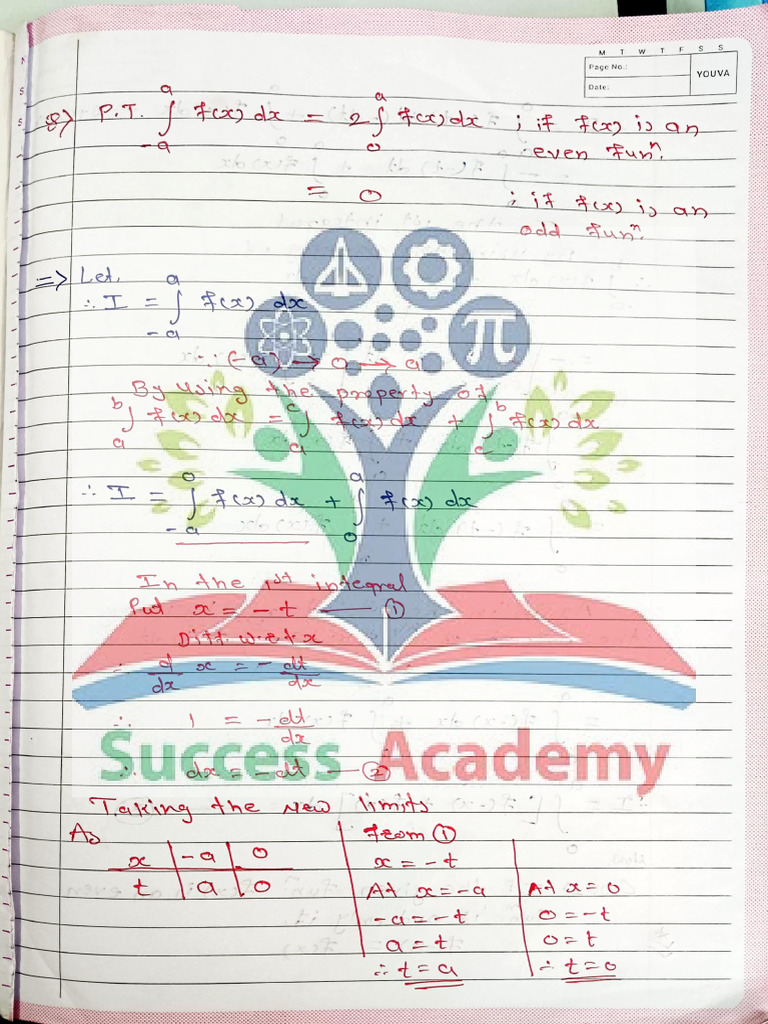 M T W T F S S
Page No.:
Date:
YOUVA
8) P.T. ∫_{-a}^{a} f(x) dx = 2 ∫_{0}^{a} f(x) dx ; if f(x) is an
even funⁿ.
= 0 ; if f(x) is an
odd funⁿ.
=> Let,
∴ I = ∫_{-a}^{a} f(x) dx
∵ (-a) → 0 → a
By using the property of
∫_{a}^{b} f(x) dx = ∫_{a}^{c} f(x) dx + ∫_{c}^{b} f(x) dx
∴ I = ∫_{-a}^{0} f(x) dx + ∫_{0}^{a} f(x) dx
In the 1st integral
Put x = - t —— ①
Diff. w.r.t x
∴ d/dx x = - dt/dx
∴ 1 = - dt/dx
∴ dx = - dt — ②
π
Success Academy
Taking the new limits
As
x | -a | 0
t | a | 0
from ①
x = -t
At x = -a
-a = -t
a = t
∴ t = a
At x = 0
0 = -t
0 = t
∴ t = 0